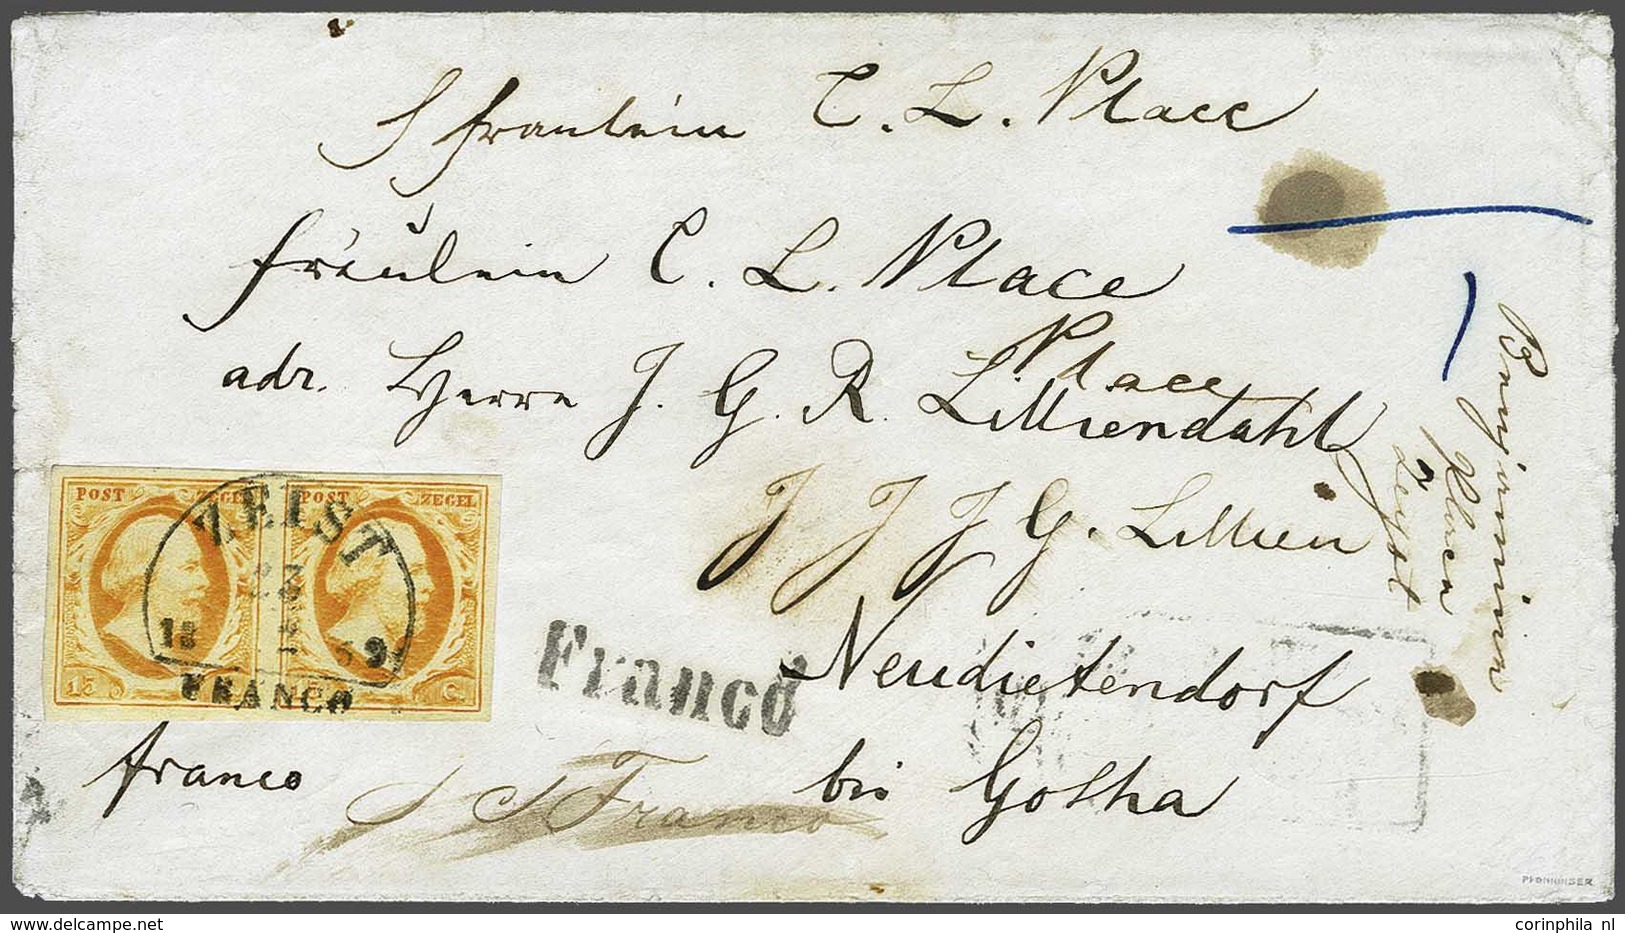 Fraulein C. L. Place
fräulein C. L. Place
Place
adr. Herrn J. G. R. Lilliendahl
J J J G. Lillien
Neudietendorf
bei Gotha
franco
Franco
Franco
POST ZEGEL POST ZEGEL
ZEIST
23
18 59
FRANCO
15 C.
Benjamin
Zeyst
PFENNINGER
www.delcampe.net
corinphila nl